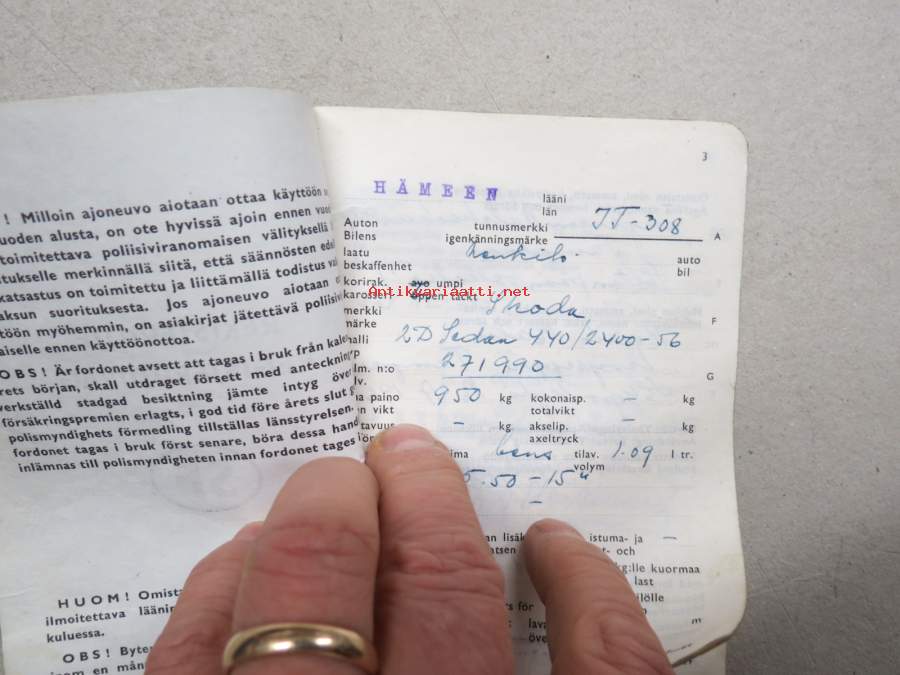 ! Milloin ajoneuvo aiotaan ottaa käyttöön
uoden alusta, on ote hyvissä ajoin ennen
toimitettava poliisiviranomaisen välityksellä
itukselle merkinnällä siitä, että säännösten
katsastus on toimitettu ja liittämällä todistus
aksun suorituksesta. Jos ajoneuvo aiotaan
töön myöhemmin, on asiakirjat jätettävä
aiselle ennen käyttöönottoa.
OBS! Är fordonet avsett att tagas i bruk från
rets början, skall utdraget försett med anteckning
verkställd stadgad besiktning jämte intyg
försäkringspremien erlagts, i god tid före årets slut
polismyndighets förmedling tillställas länsstyrelsen.
fordonet tagas i bruk först senare, böra dessa
inlämnas till polismyndigheten innan fordonet tages
HUOM! Omist
ilmoitettava lääni
kuluessa.
OBS! Byter
inom en mån
3
HÄMEEN lääni
län
Auton tunnusmerkki IT-308 A
Bilens igenkänningsmärke
laatu auto
beskaffenhet bil
korirak. avo umpi
karosseri öppen täckt
Antikvariaatti.net
merkki Skoda F
märke
malli 2D Sedan 440/2400-56
lm. n:o 271990 G
paino 950 kg kokonaisp. - kg
vikt totalvikt
- kg akselip. - kg
axeltryck
ima bens tilav. 1.09 l tr.
volym
5.50-15"
-
istuma- ja -
- och
kg:lle kuormaa
last
för
m